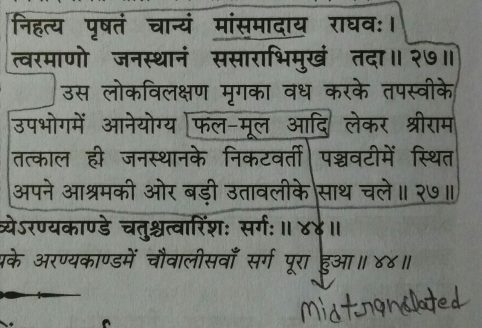 निहत्य पृषतं चान्यं मांसमादाय राघवः।
त्वरमाणो जनस्थानं ससाराभिमुखं तदा॥ २७॥
उस लोकविलक्षण मृगका वध करके तपस्वीके
उपभोगमें आनेयोग्य फल-मूल आदि लेकर श्रीराम
तत्काल ही जनस्थानके निकटवर्ती पञ्चवटीमें स्थित
अपने आश्रमकी ओर बड़ी उतावलीके साथ चले॥ २७॥
व्येऽरण्यकाण्डे चतुश्चत्वारिंशः सर्गः॥ ४४॥
यके अरण्यकाण्डमें चौवालीसवाँ सर्ग पूरा हुआ॥ ४४॥
mistranslated